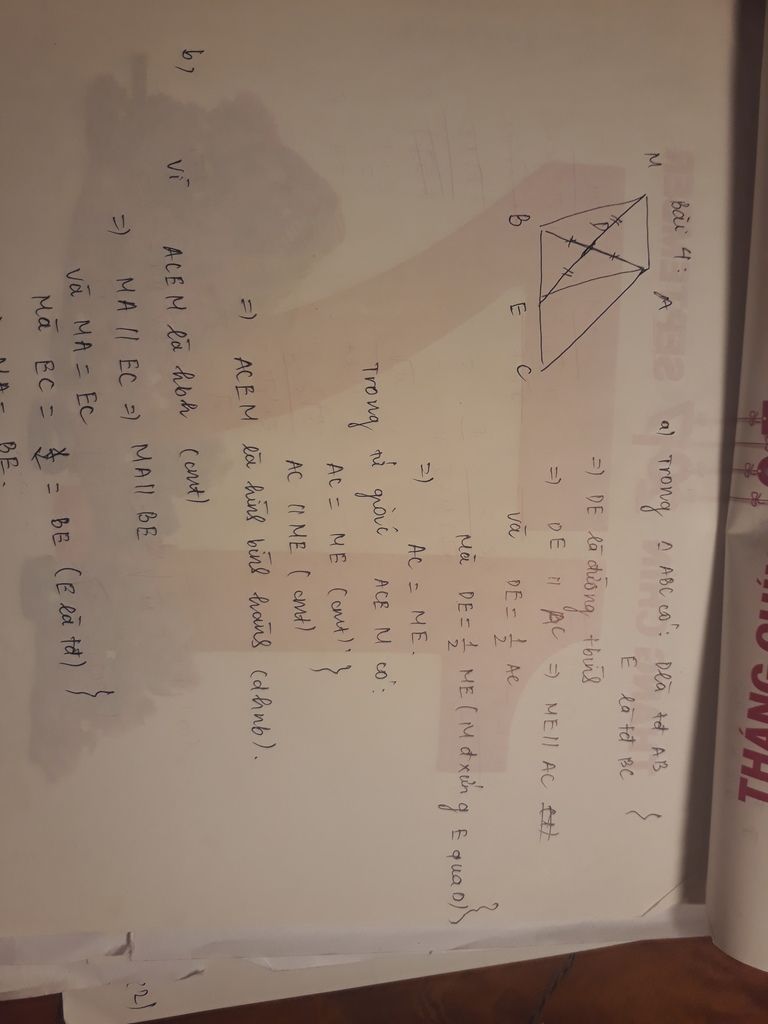 Bài 4:
M
A
D
B
E
C
a) Trong △ ABC có: D là tđ AB
E là tđ BC }
=) DE là đường tbình
=) DE // AC =) ME // AC
và DE = 1/2 AC
Mà DE = 1/2 ME (M đxứng E qua D) }
=) AC = ME.
Trong tứ giác ACEM có:
AC = ME (cmt) }
AC // ME (cmt)
=) ACEM là hình bình hành (dhnb).
b, Vì ACEM là hbh (cmt)
=) MA // EC =) MA // BE
và MA = EC
Mà EC = BE (E là tđ) }
MA = BE.
THÁNG
2)